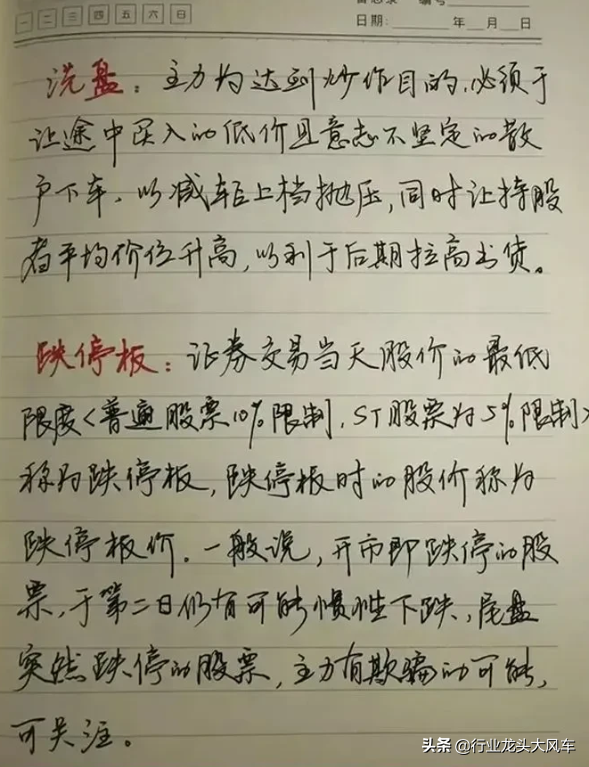 一 二 三 四 五 六 日
备忘录 编号
日期: 年 月 日
洗盘：主力为达到炒作目的，必须于
让途中买入的低价且意志不坚定的散
户下车，以减轻上档抛压，同时让持股
者平均价位升高，以利于后期拉高出货。
跌停板：证券交易当天股价的最低
限度<普通股票10%限制，ST股票为5%限制>
称为跌停板，跌停板时的股价称为
跌停板价。一般说，开市即跌停的股
票，于第二日仍有可能惯性下跌，尾盘
突然跌停的股票，主力有欺骗的可能，
可关注。
头条 @行业龙头大风车